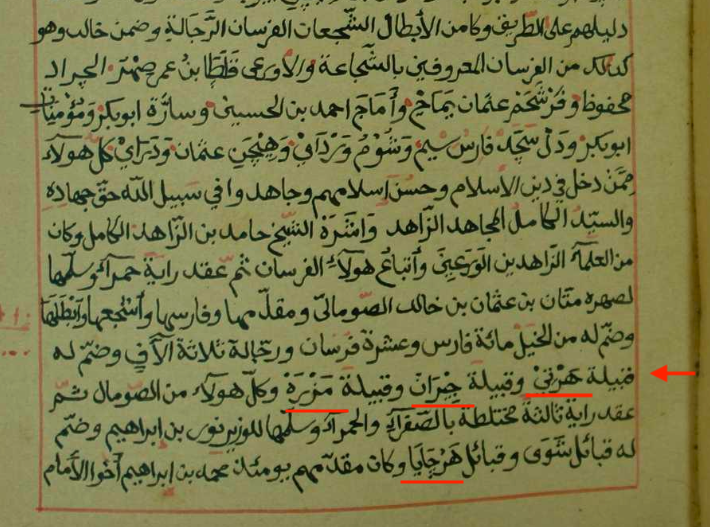 دليلهم على الطريق وكا من الأبطال الشجعات الفرسان الرجالة وضمن خالب وهو
كذلك من الفرسان المعروفين بالشجاعة والأورعى قاطا بن عمر الجراد
محفوظ عثمان وأماج احمد بن الحسينى وسارة ابوبكر
ابوبكر فارس سيم عثمان كل هولآء
ممن دخل فى دين الأسلام وحسن اسلامهم وجاهدوا فى سبيل الله حق جهاده
والسيد الكامل المجاهد الزاهد الشيخ حامد بن الزاهد الكامل وكان
من العلمآء الزاهدين الورعين وأتباع هولآء الفرسان ثم عقد راية حمرآء وسلمها
لصهره متان بن عثمان بن خالد الصومالى ومقدمها وفارسها وأشجعها وأبطلها
وضم له من الخيل مائة فارس وعشرة فرسان ورجالة ثلاثة الآف وضم له
قبيلة هرتى وقبيلة جران وقبيلة مزرة وكل هولآء من الصومال ثم
عقد راية ثالثة مختلطة بالصفرآء والحمرآء وسلمها للوزير نور بن ابراهيم وضم
له قبائل شوى وقبائل هرجايا وكان مقدمهم يومئذ محمد بن ابراهيم أخوا الأمام